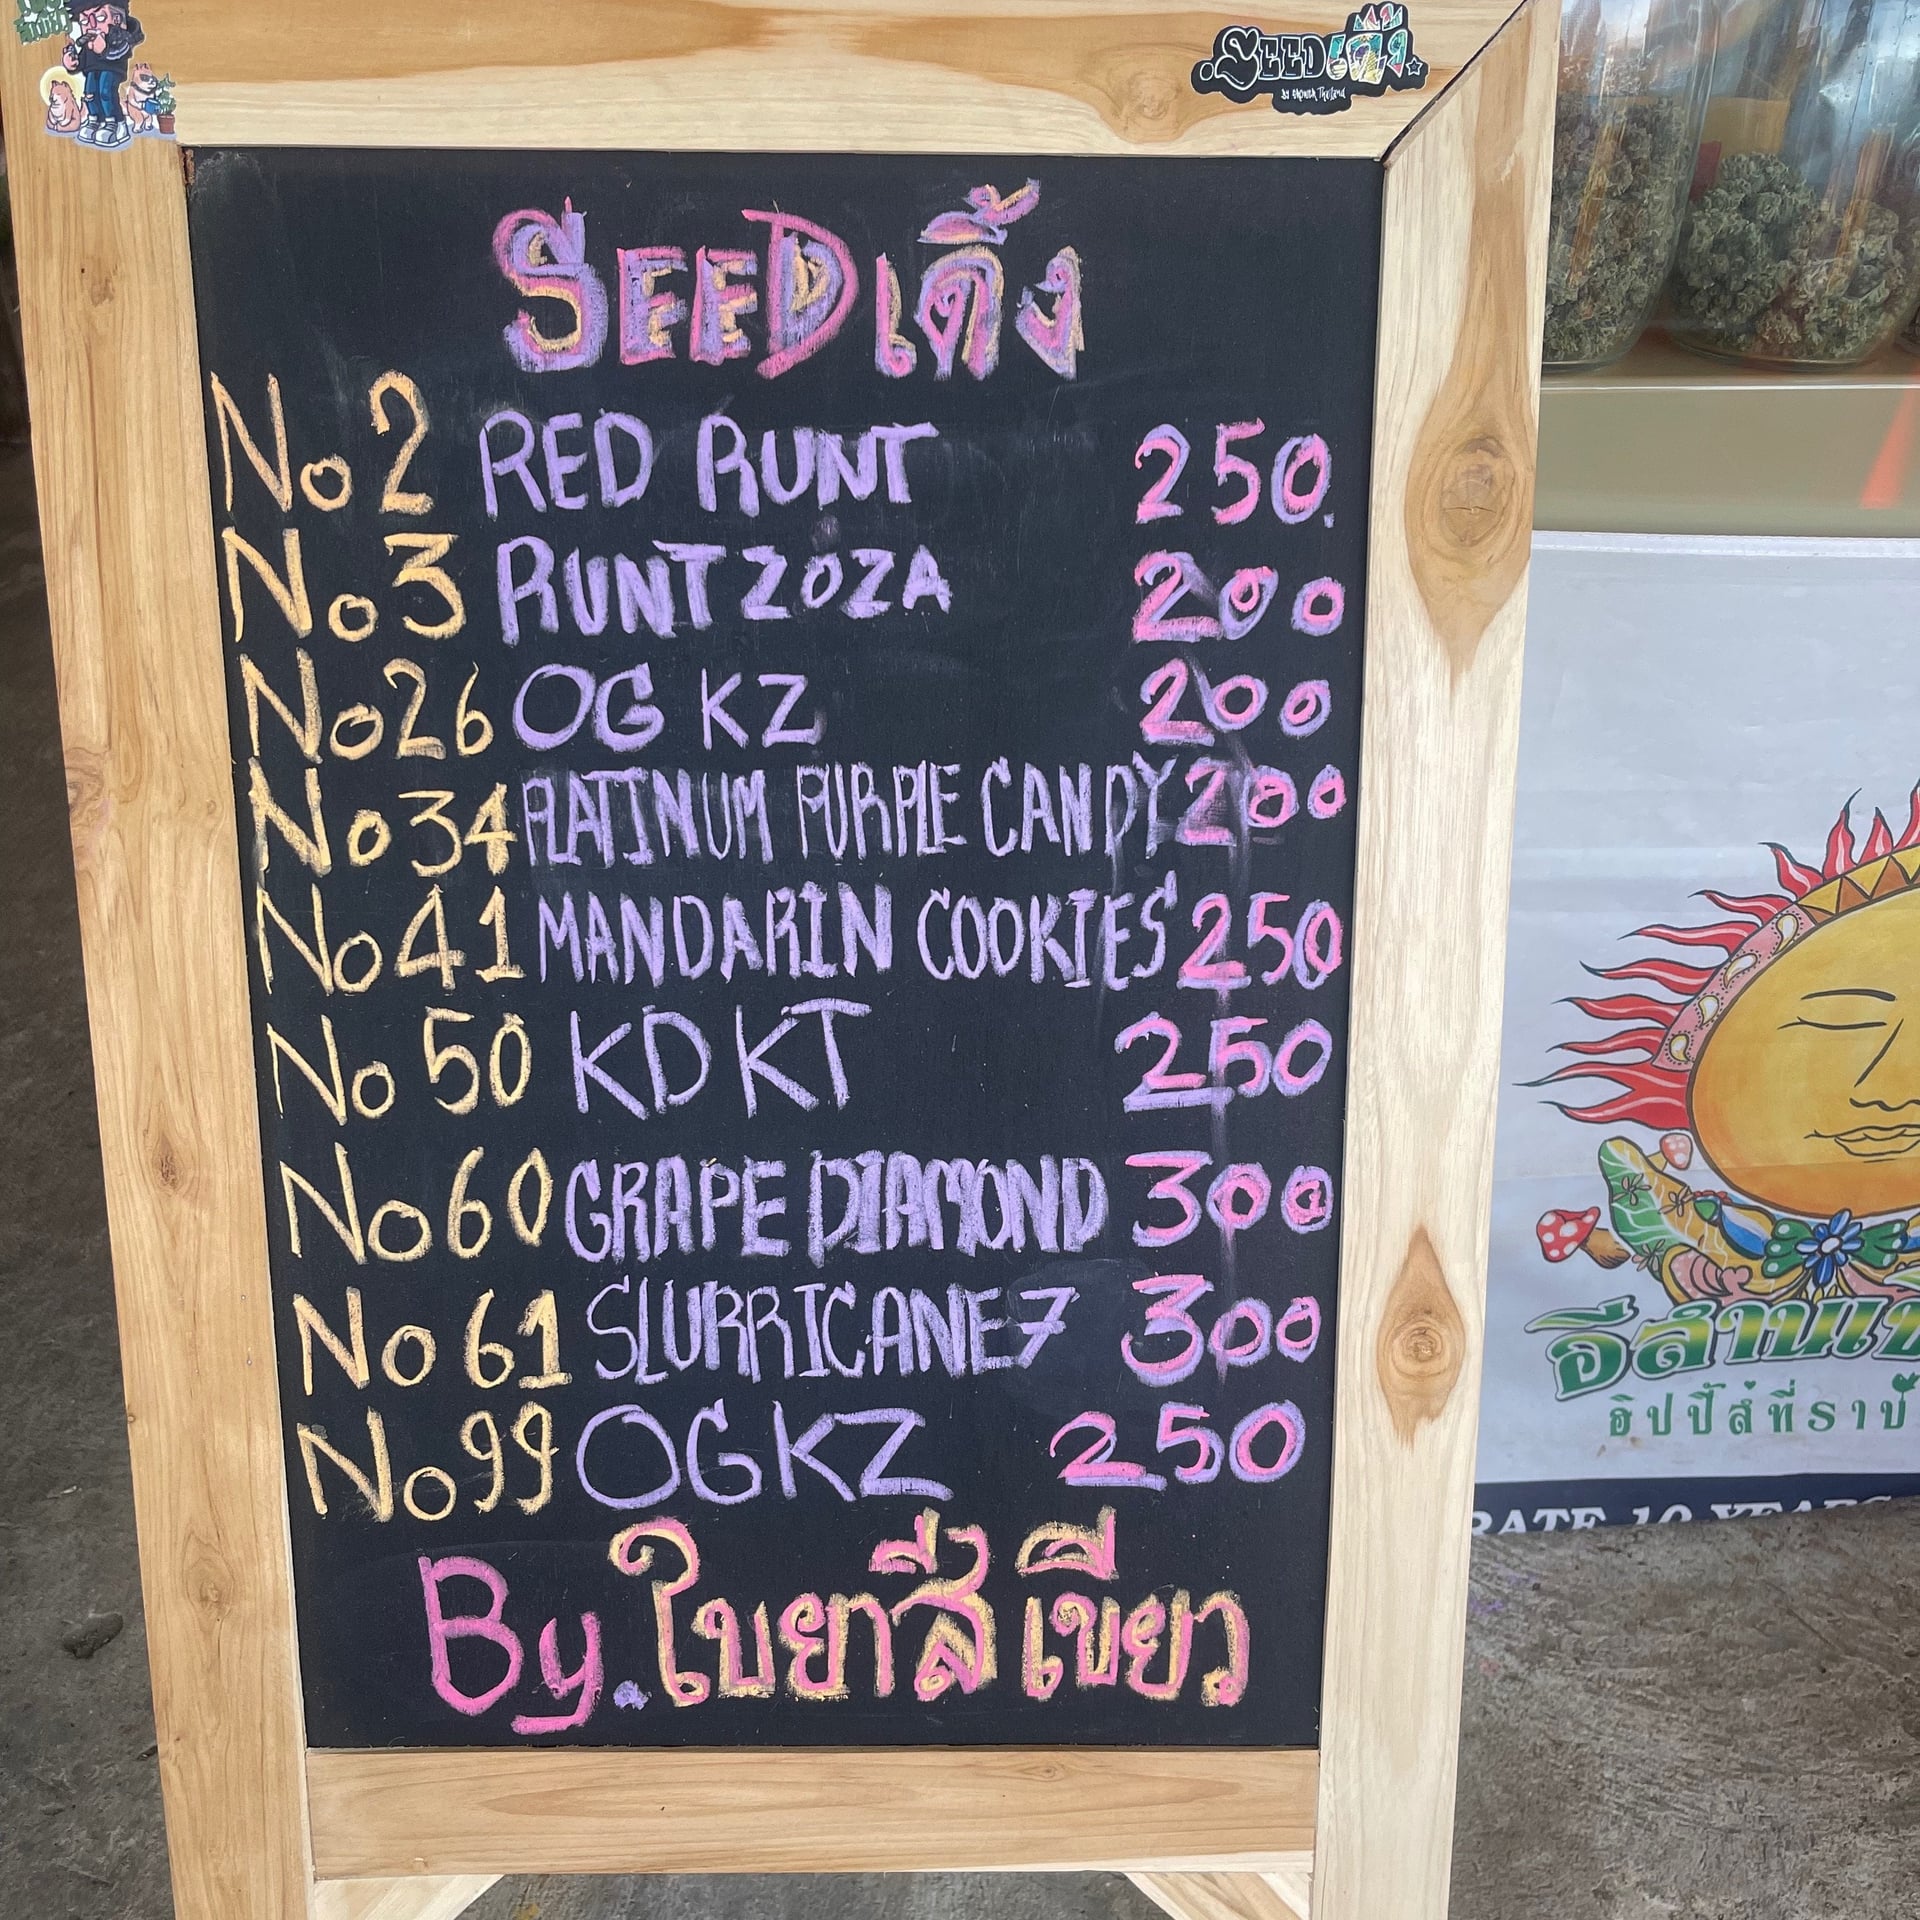 SEEDเดิ้ง
BY SHOWER Thailand
SEEDเดิ้ง
No 2 RED RUNT 250.
No 3 RUNT ZOZA 200
No 26 OG KZ 200
No 34 PLATINUM PURPLE CANDY 200
No 41 MANDARIN COOKIES 250
No 50 KD KT 250
No 60 GRAPE DIAMOND 300
No 61 SLURRICANE7 300
No 99 OGKZ 250
By. ใบยาสีเขียว
อีสานเ
ฮิปปี้ส์ที่ราบ
RATE 10 YEARS